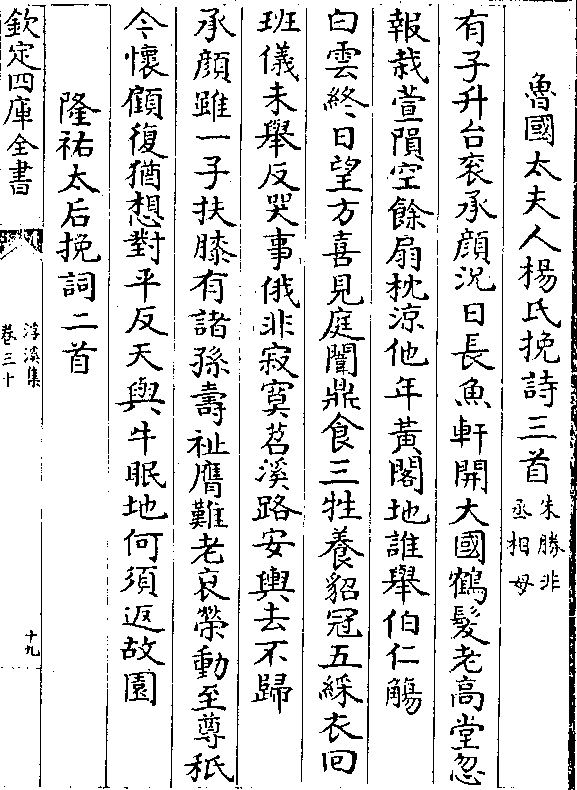 魯國太夫人楊氏挽詩三首朱勝非丞相母
有子升台衮承顏況日長魚軒開大國鶴髮老高堂忽
報栽萱隕空餘扇枕涼他年黃閣地誰舉伯仁觴
白雲終日望方喜見庭闈鼎食三牲養貂冠五綵衣回
班儀未舉反哭事俄非寂寞苕溪路安輿去不歸
承顏雖一子扶膝有諸孫壽祉膺難老哀榮動至尊秪
今懷顧復猶想對平反天與牛眠地何須返故園
隆祐太后挽詞二首
欽定四庫全書
浮溪集
卷三十
十九